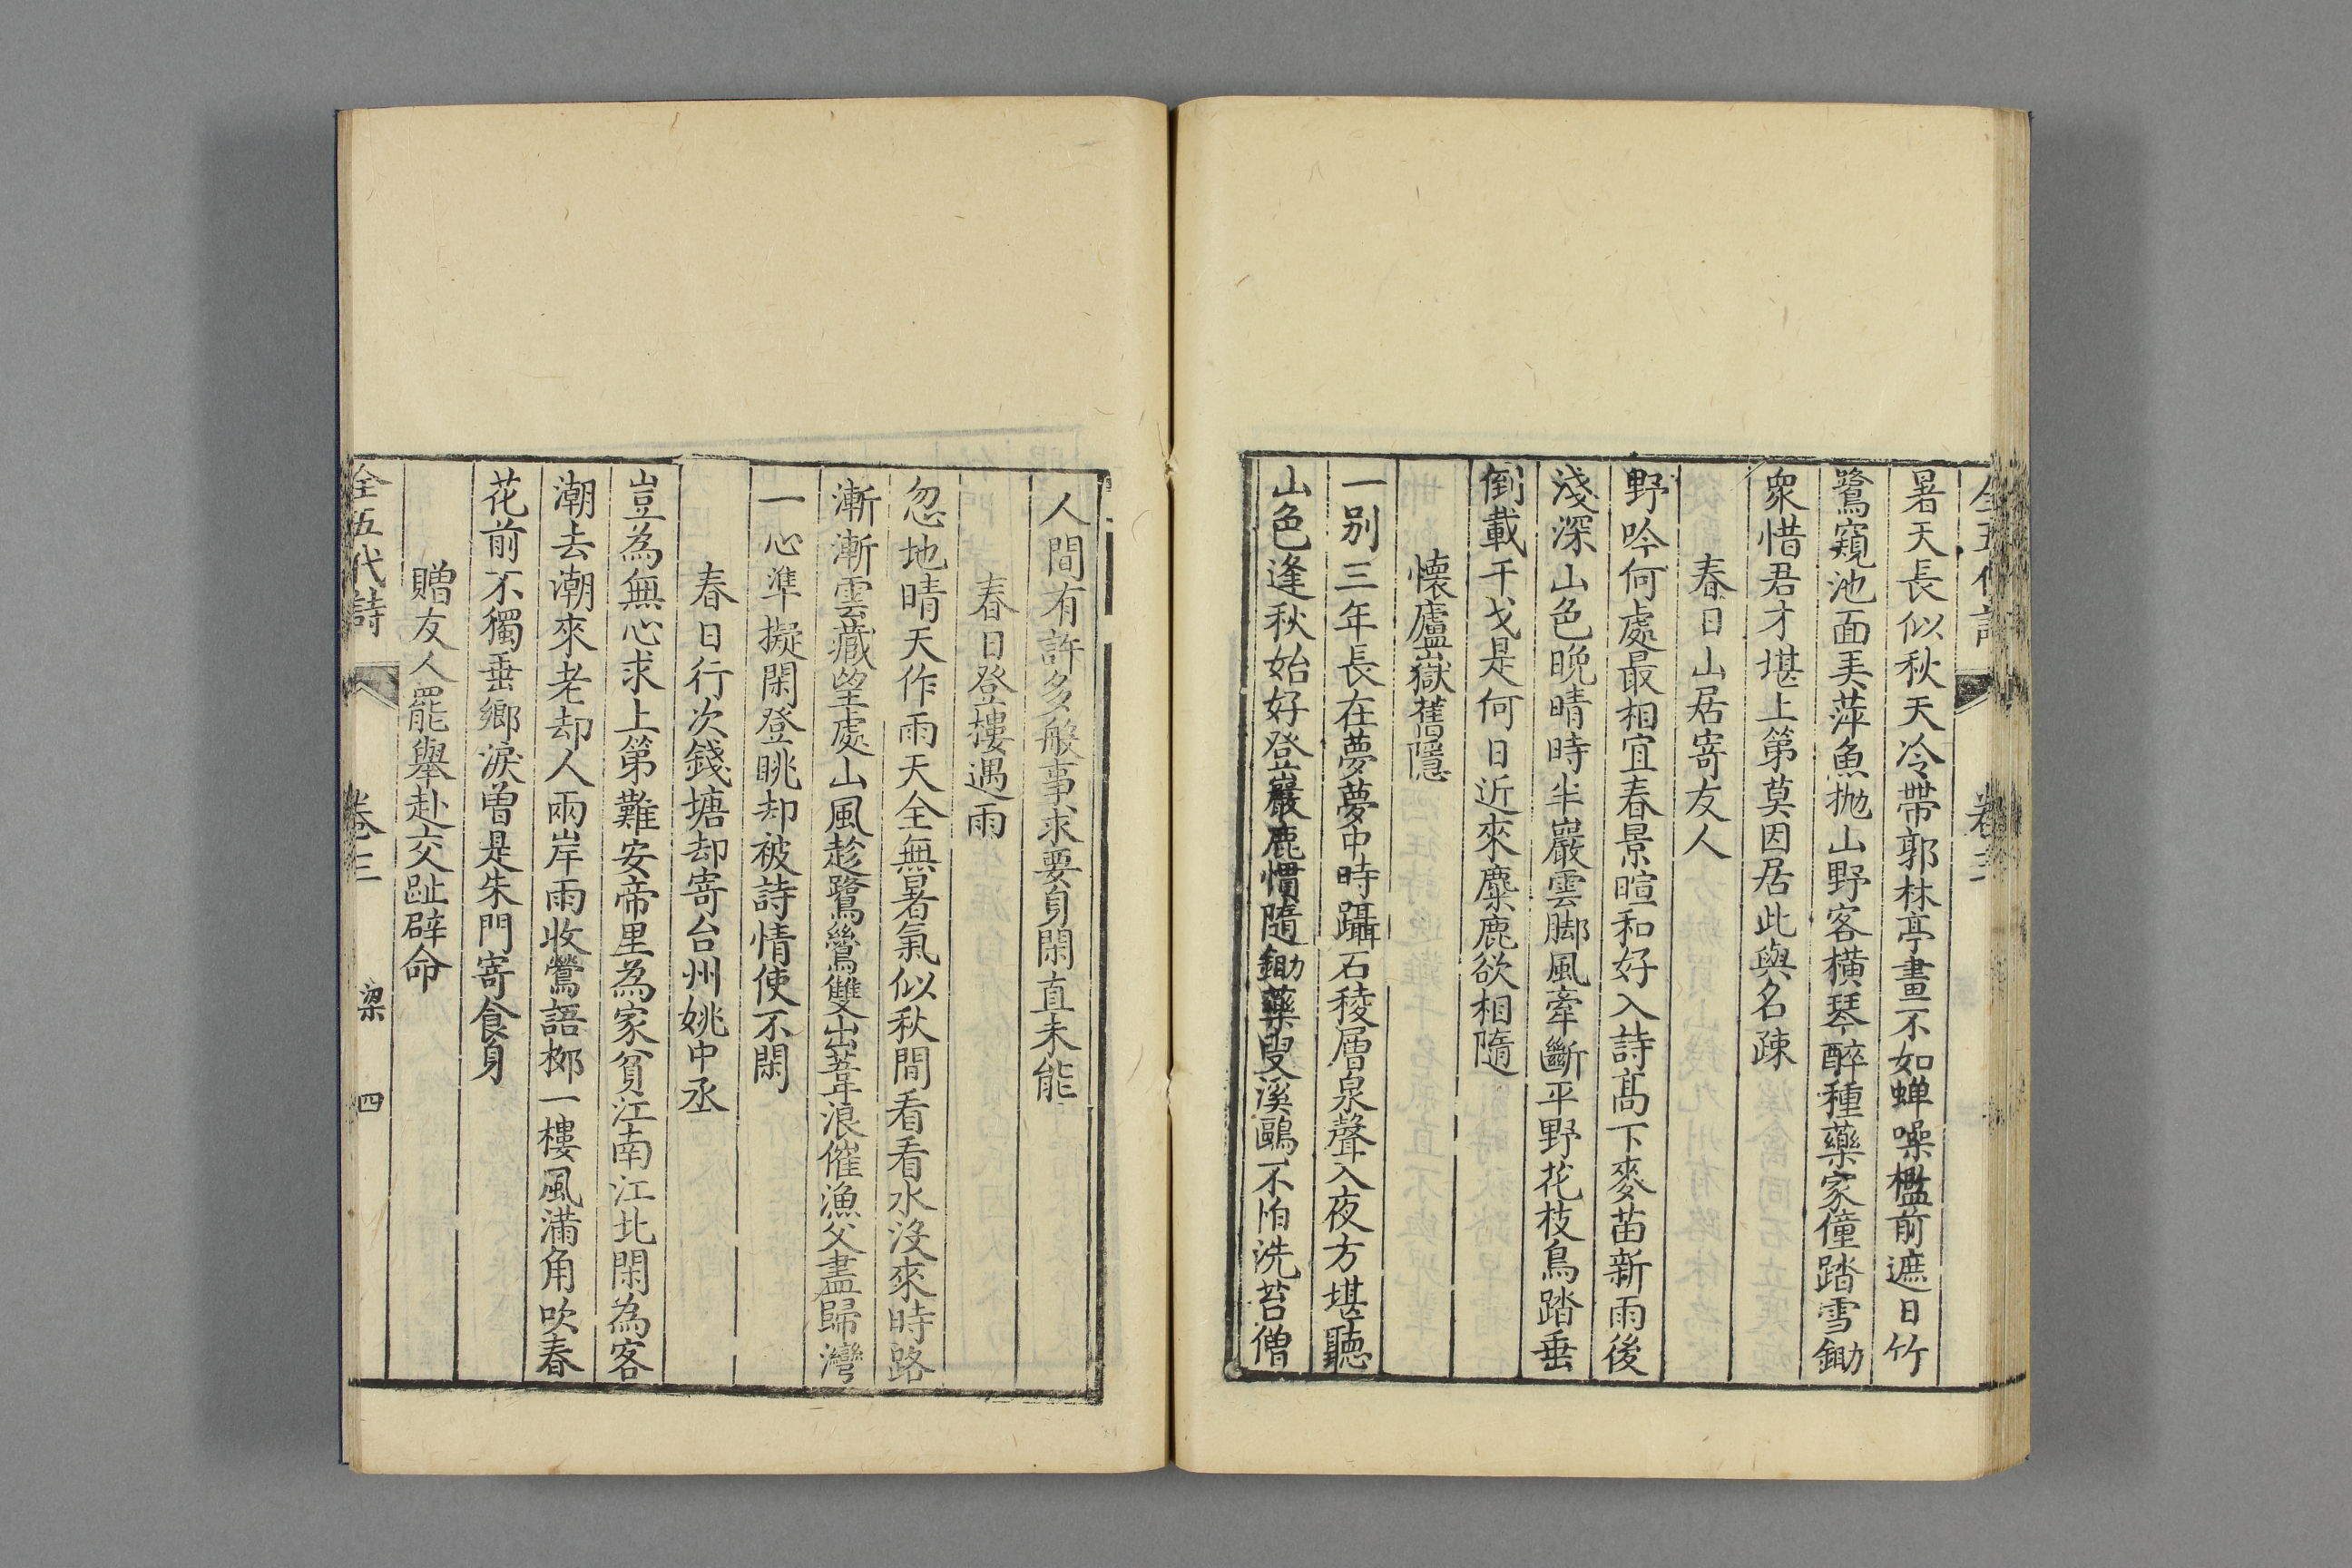 全五代詩 卷三
暑天長似秋天冷帶郭林亭畫不如蟬噪檻前遮日竹
鷺窺池面弄萍魚抛山野客橫琴醉種藥家僮踏雪鋤
衆惜君才堪上第莫因居此與名疎
春日山居寄友人
野吟何處最相宜春景暄和好入詩髙下麥苗新雨後
淺深山色晚晴時半巖雲脚風牽斷平野花枝鳥踏垂
倒載干戈是何日近來麋鹿欲相隨
懷廬嶽舊隱
一别三年長在夢夢中時躡石稜層泉聲入夜方堪聽
山色逢秋始好登巖鹿慣隨鋤藥叟溪鷗不怕洗苔僧
人間有許多般事求要身閑直未能
春日登樓遇雨
忽地晴天作雨天全無暑氣似秋間看看水沒來時路
漸漸雲藏望處山風趁鷺鷥雙出葦浪催漁父盡歸灣
一心準擬閑登眺却被詩情使不閑
春日行次錢塘却寄台州姚中丞
豈為無心求上第難安帝里為家貧江南江北閑為客
潮去潮來老却人兩岸雨收鶯語栁一樓風滿角吹春
花前不獨垂鄉淚曾是朱門寄食身
贈友人罷舉赴交趾辟命
全五代詩 卷三 梁 四